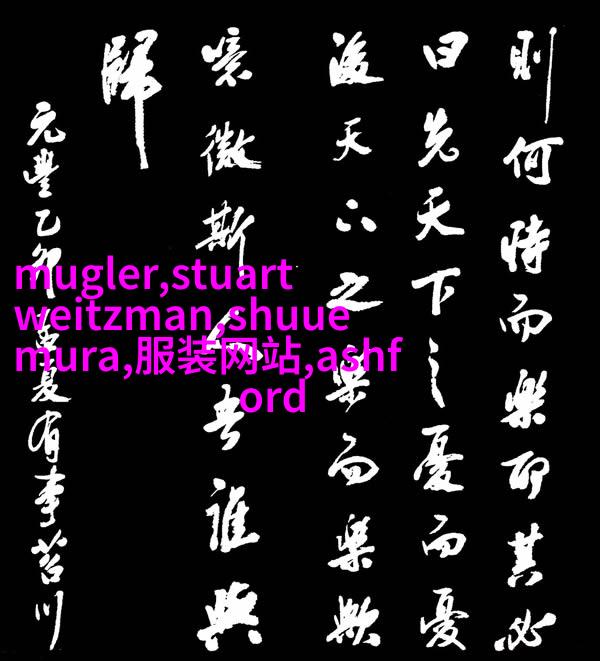 則何時而樂耶其必
曰先天下之憂而憂
後天下之樂而樂歟
噫微斯人吾誰與
歸
元豐乙卯孟夏有事苕川
mugler,stuart
weitzman,shuue
mura,服装网站,ashf
ord